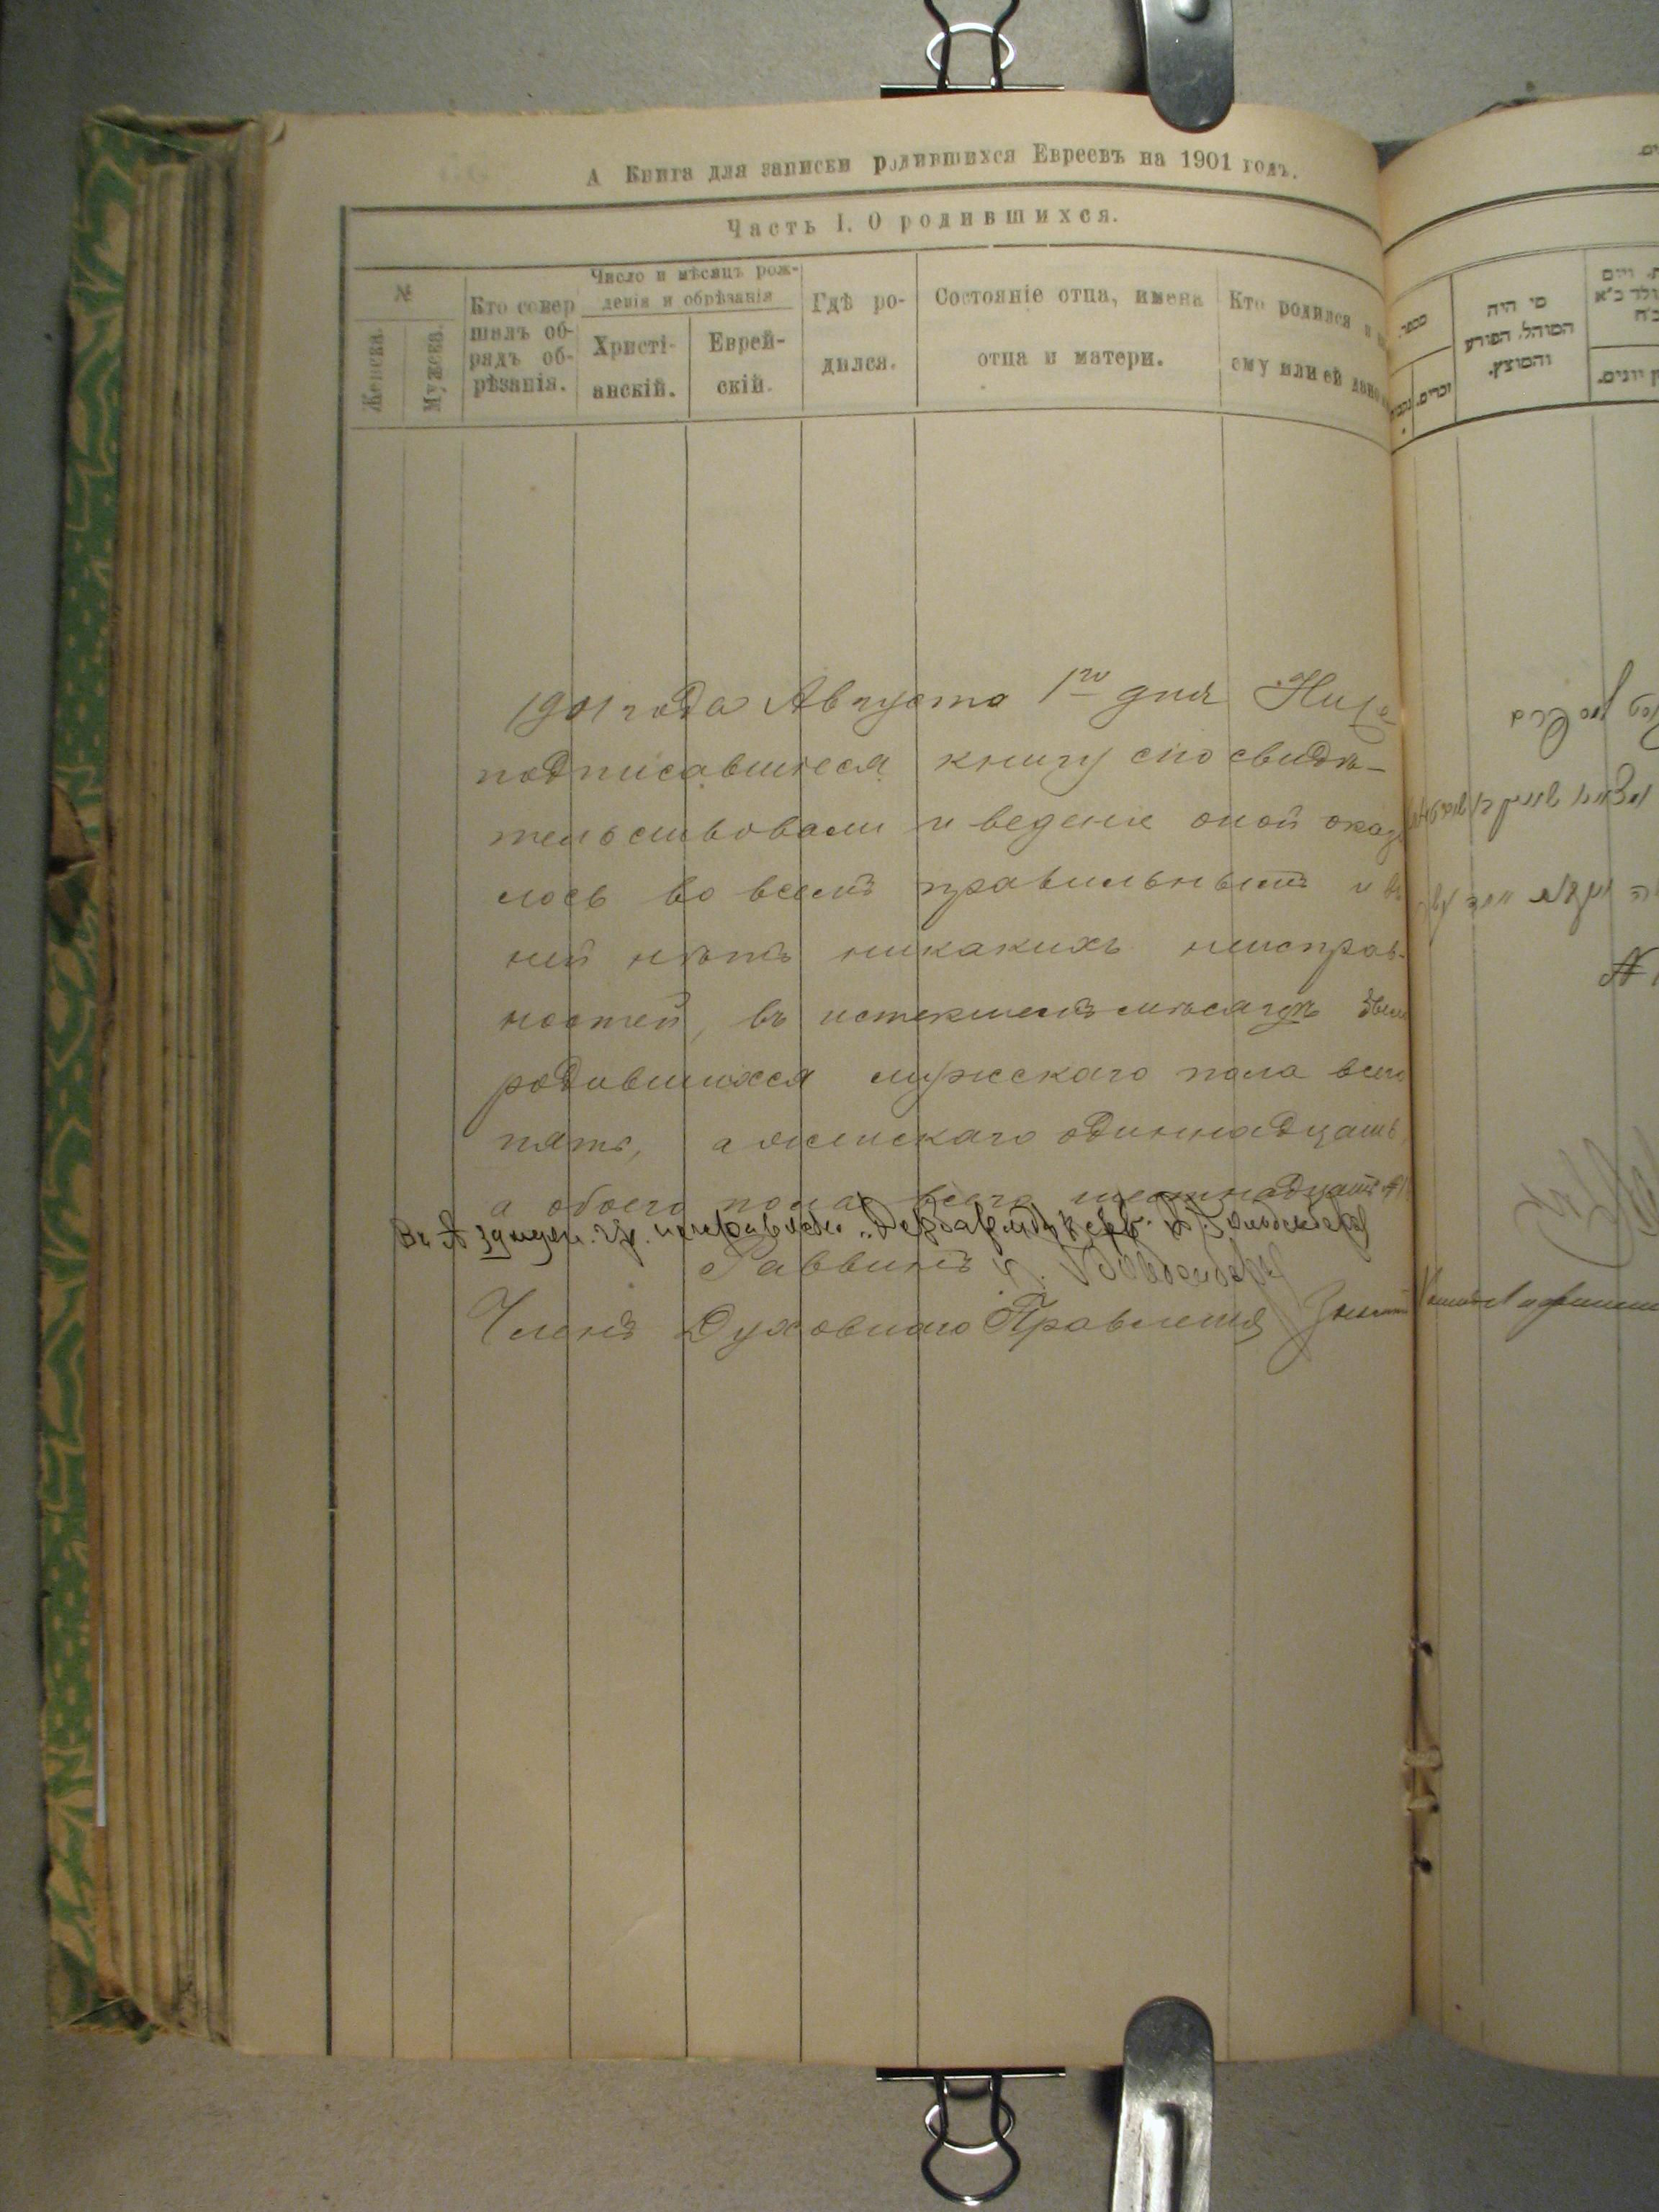 А Книга для записки родившихся Евреевъ на 1901 годъ.
Часть I. О родившихся.
№
Женска.
Мужска.
Кто совер
шалъ об-
рядъ об-
рѣзанія.
Число и мѣсяцъ рож-
денія и обрѣзанія
Христі-
анскій.
Еврей-
скій.
Гдѣ ро-
дился.
Состояніе отца, имена
отца и матери.
Кто родился и
ему или ей дано
1901 года Августа 1го дня Ниже
подписавшіеся книгу сію свидѣ-
тельствовали и веденіе оной оказа
лось во всемъ правильнымъ и въ
ней нѣтъ никакихъ неисправ-
ностей, въ истекшемъ мѣсяцѣ было
родившихся мужскаго пола всего
пять, а женскаго одиннадцать,
а обоего пола всего шестнадцать
Раввинъ
Членъ Духовнаго Правленія
מספר
זכרים.
נקבות
מי היה
המוהל, הפורע
והמוצץ.